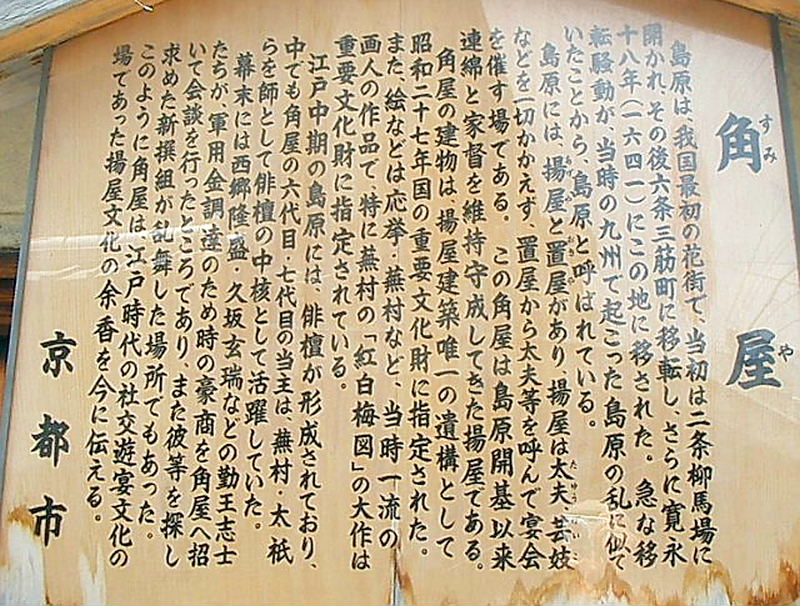 角屋
すみや
島原は、我国最初の花街で、当初は二条柳馬場に
開かれ、その後六条三筋町に移転し、さらに寛永
十八年（一六四一）にこの地に移された。急な移
転騒動が、当時の九州で起こった島原の乱に似て
いたことから、島原と呼ばれている。
島原には、揚屋と置屋があり、揚屋は太夫・芸妓
などを一切かかえず、置屋から太夫等を呼んで宴会
を催す場である。この角屋は島原開基以来
連綿と家督を維持守成してきた揚屋である。
角屋の建物は、揚屋建築唯一の遺構として
昭和二十七年国の重要文化財に指定された。
また、絵などは応挙・蕪村など、当時一流の
画人の作品で、特に蕪村の「紅白梅図」の大作は
重要文化財に指定されている。
江戸中期の島原には、俳壇が形成されており、
中でも角屋の六代目・七代目の当主は、蕪村・太祇
らを師として俳壇の中核として活躍していた。
幕末には西郷隆盛・久坂玄瑞などの勤王志士
たちが、軍用金調達のため時の豪商を角屋へ招
いて会談を行ったところであり、また彼等を探し
求めた新撰組が乱舞した場所でもあった。
このように角屋は、江戸時代の社交遊宴文化の
場であった揚屋文化の余香を今に伝える。
京都市